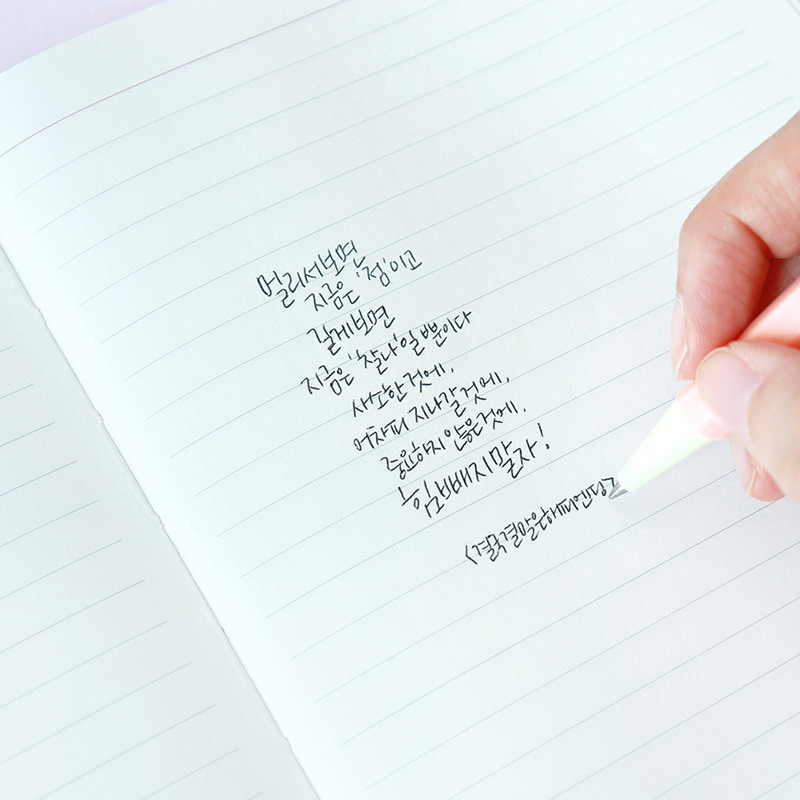 멀리서보면
지금은 '점'이고
길게보면
지금은 '찰나'일 뿐이다
사소한 것에,
어차피 지나갈 것에,
중요하지 않은 것에,
힘 빼지 말자!
<결국 결말은 해피엔딩>